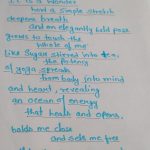 It is a wonder
how a simple stretch
deepens breath
and an elegantly held pose
grows to touch the
whole of me
like sugar stirred into tea,
the potency
of yoga spreads
from body into mind
and heart, revealing
an ocean of energy
that heals and opens,
holds me close
and sets me free